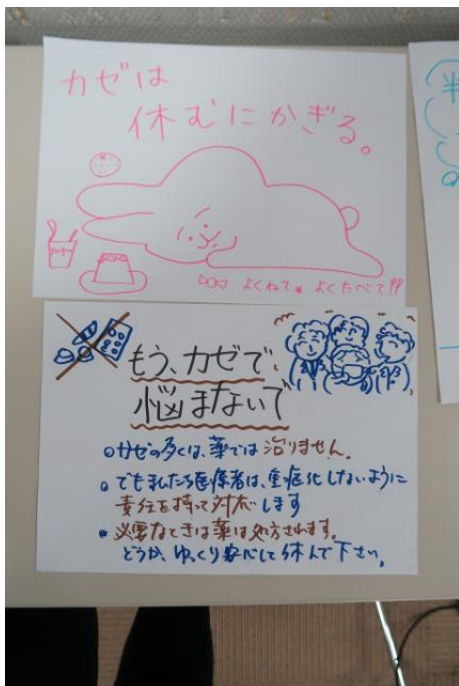 カゼは
休むにかぎる。
よくねて よくたべて!!
もう、カゼで
悩まないで
カゼの多くは、薬では治りません。
でも私たち医療者は、重症化しないように
責任を持って対応します
必要なときは薬は処方されます。
どうか、ゆっくり安心して休んで下さい。